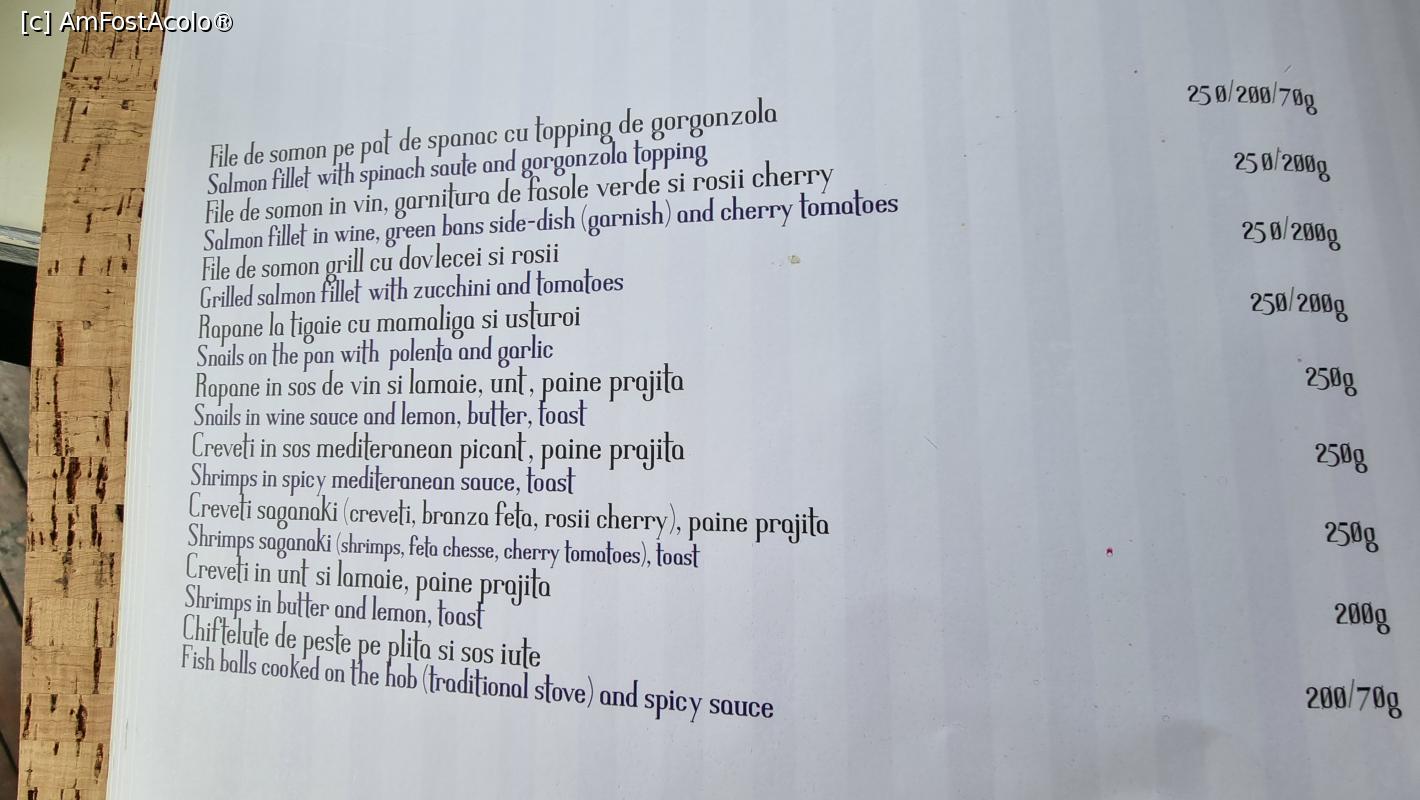 [c] AmFostAcolo®
File de somon pe pat de spanac cu topping de gorgonzola 250/200/70g
Salmon fillet with spinach saute and gorgonzola topping
File de somon in vin, garnitura de fasole verde si rosii cherry 250/200g
Salmon fillet in wine, green bans side-dish (garnish) and cherry tomatoes
File de somon grill cu dovlecei si rosii 250/200g
Grilled salmon fillet with zucchini and tomatoes
Rapane la tigaie cu mamaliga si usturoi 250/200g
Snails on the pan with polenta and garlic
Rapane in sos de vin si lamaie, unt, paine prajita 250g
Snails in wine sauce and lemon, butter, toast
Creveti in sos mediteranean picant, paine prajita 250g
Shrimps in spicy mediteranean sauce, toast
Creveti saganaki (creveti, branza feta, rosii cherry), paine prajita 250g
Shrimps saganaki (shrimps, feta chesse, cherry tomatoes), toast
Creveti in unt si lamaie, paine prajita 200g
Shrimps in butter and lemon, toast
Chiftelute de peste pe plita si sos iute 200/70g
Fish balls cooked on the hob (traditional stove) and spicy sauce